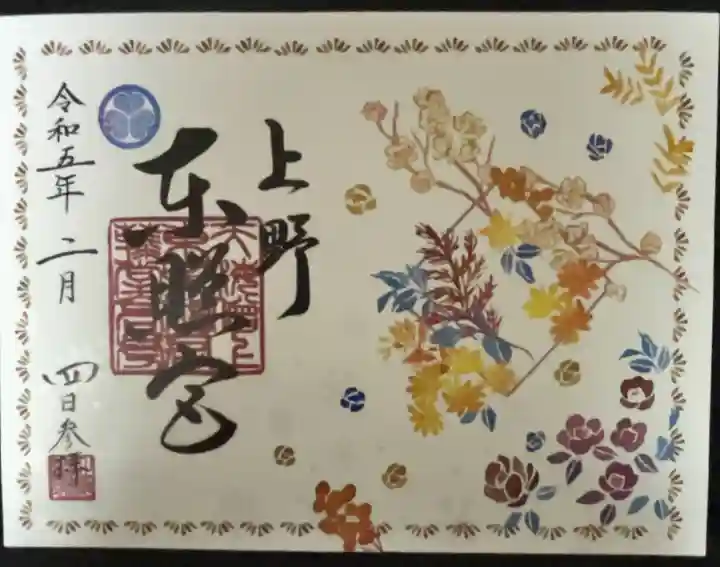 上野
東照宮
令和五年 二月 四日参拝